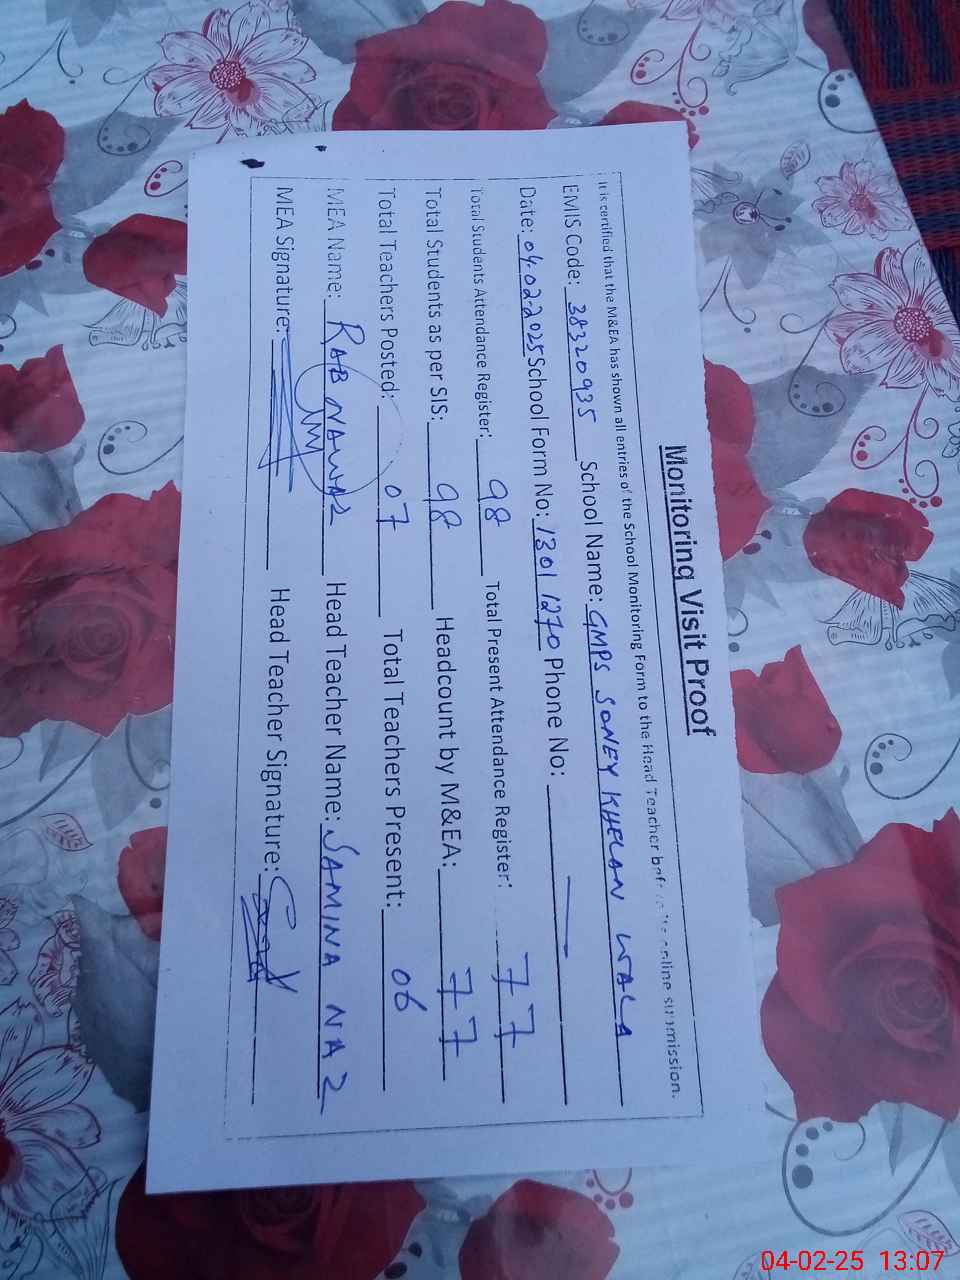 Monitoring Visit Proof
It is certified that the M&EA has shown all entries of the School Monitoring Form to the Head Teacher before its online submission.
EMIS Code: 38320935 School Name: GMPS SONEY KHELAN WALA
Date: 04.02.2025 School Form No: 13011270 Phone No: —
Total Students Attendance Register: 98 Total Present Attendance Register: 77
Total Students as per SIS: 98 Headcount by M&EA: 77
Total Teachers Posted: 07 Total Teachers Present: 06
MEA Name: RAB NAWAZ Head Teacher Name: SAMINA NAZ
MEA Signature: Head Teacher Signature:
04-02-25 13:07